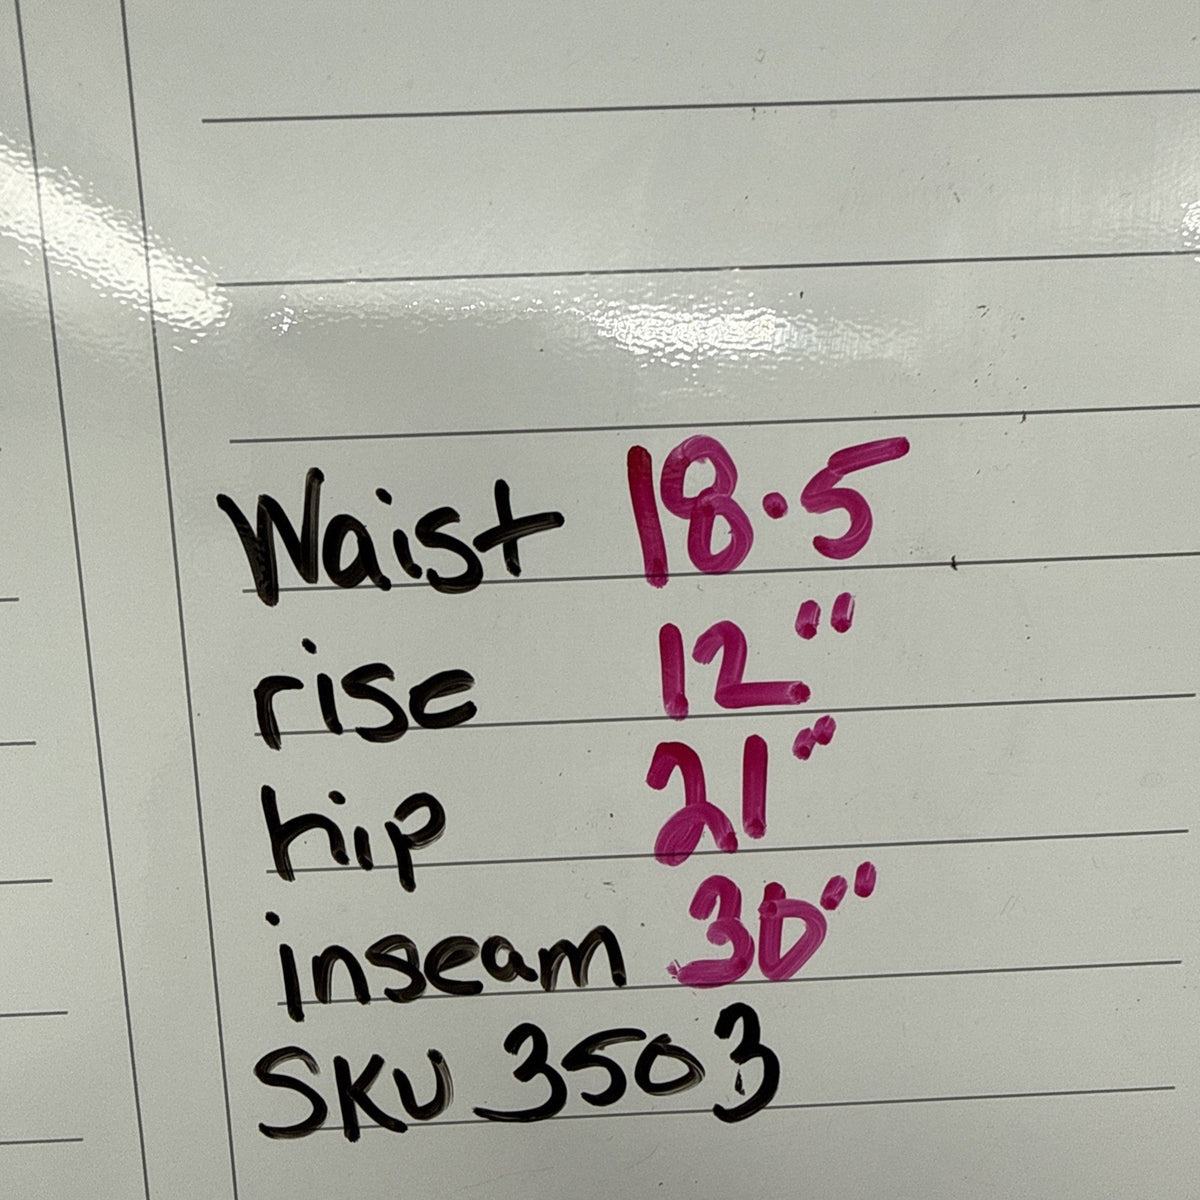 Waist 18.5
rise 12"
hip 21"
inseam 30"
SKU 3503